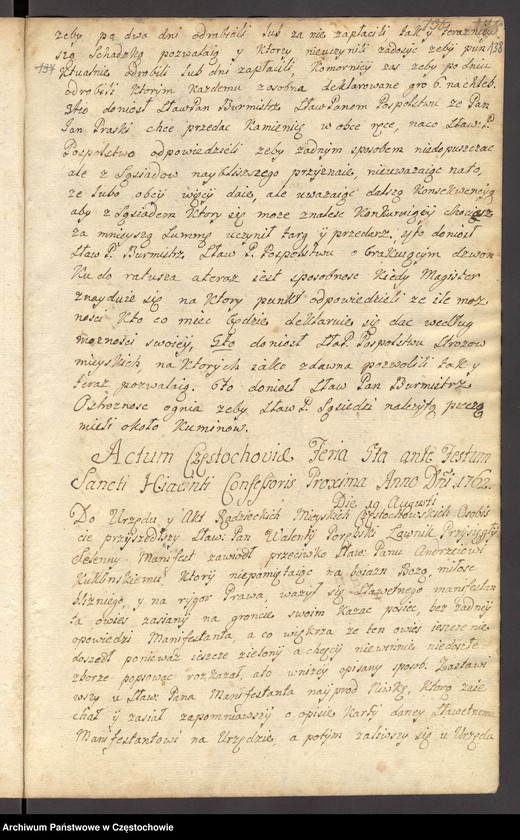 138
żeby po dwa dni odrabiali lub za nie zapłacili tak y teraznieysz
szą Schadzką pozwalaią y Ktorzy nieuczynili zadosyc zeby pun
ktualnie odrobili lub dni zapłacili, Komornicy zas zeby po dniu
odrobili Ktorym Kazdemu zosobna deklarowane gro. 6. na chleb.
3tio doniosł Sław Pan Burmistrz Sław Panom Pospolstwu ze Pan
Jan Praski chce przedac Kamienicę w obce ręce, naco Sław. P.
Pospolstwo odpowiedzieli zeby zadnym sposobem niedopuszczac
ale z Sąsiadow naybliższego przyznaie, nieuwazaiąc na to,
ze lubo obcy więcy daie, ale uwazaiąc dalszą Konsekwencyą
aby z Sąsiadem Ktory się moze znalesc Konkuruiący chociasz
za mnieyszą Summę uczynił targ y przedarz, 4to doniosł
Sław P. Burmistrz Sław P. Pospolstwu o brakuiącym dzwon
ku do ratusza a teraz iest sposobnosc kiedy Magister
znayduie się na Ktory punkt odpowiedzieli ze ile moz
nosci Kto co miec będzie deklaruie się dac według
moznosci swoiey, 5to doniosł Sła P. Pospolstwu Strozow
mieyskich, na Ktorych iako zdawna pozwolili tak y
teraz pozwalaią. 6to doniosł Sław Pan Burmistrz
Ostroznosc ognia zeby Sław P. Sąsiedzi nalezytą przed
mieli około Kuminow.
Actum Częstochoviæ Feria 5ta ante Festum
Sancti Hiacinti Confessoris Proxima Anno Dni 1762
Die 19 Augusti
Do Urzędu y Akt Radzieckich Mieyskich Częstochowskich Osobis
cie przyszedłszy Sław: Pan Walenty Ławnik Przysięgły
Solenny Manifest zawiodł przeciwko Sław. Panu Andrzeiowi
Kuklinskiemu Ktory niepamiętaiąc na boiazn Bozą, miłosc
blizniego, y na rygor Prawa, wazył się Sławetnego manifestan
ta owies zasiany na groncie swoim kazac posiec, bez zadney
opowiedzi Manifestanta, a co większa ze ten owies ieszcze nie
doszedł poniewaz ieszcze zielony a chcący niewinnie niedosłe
zborze popsowac roskazał, ato wnizey opisany sposob. Zastawi
wszy u Sław. Pana Manifestanta nayprod Niwkę, Ktorą zaie
chał y zasiał zapomniawszy o opisie Karty daney Sławetnemu
Manifestantowi na Urzędzie a potym zaliwszy się u Urzędu
Archiwum Państwowe w Częstochowie